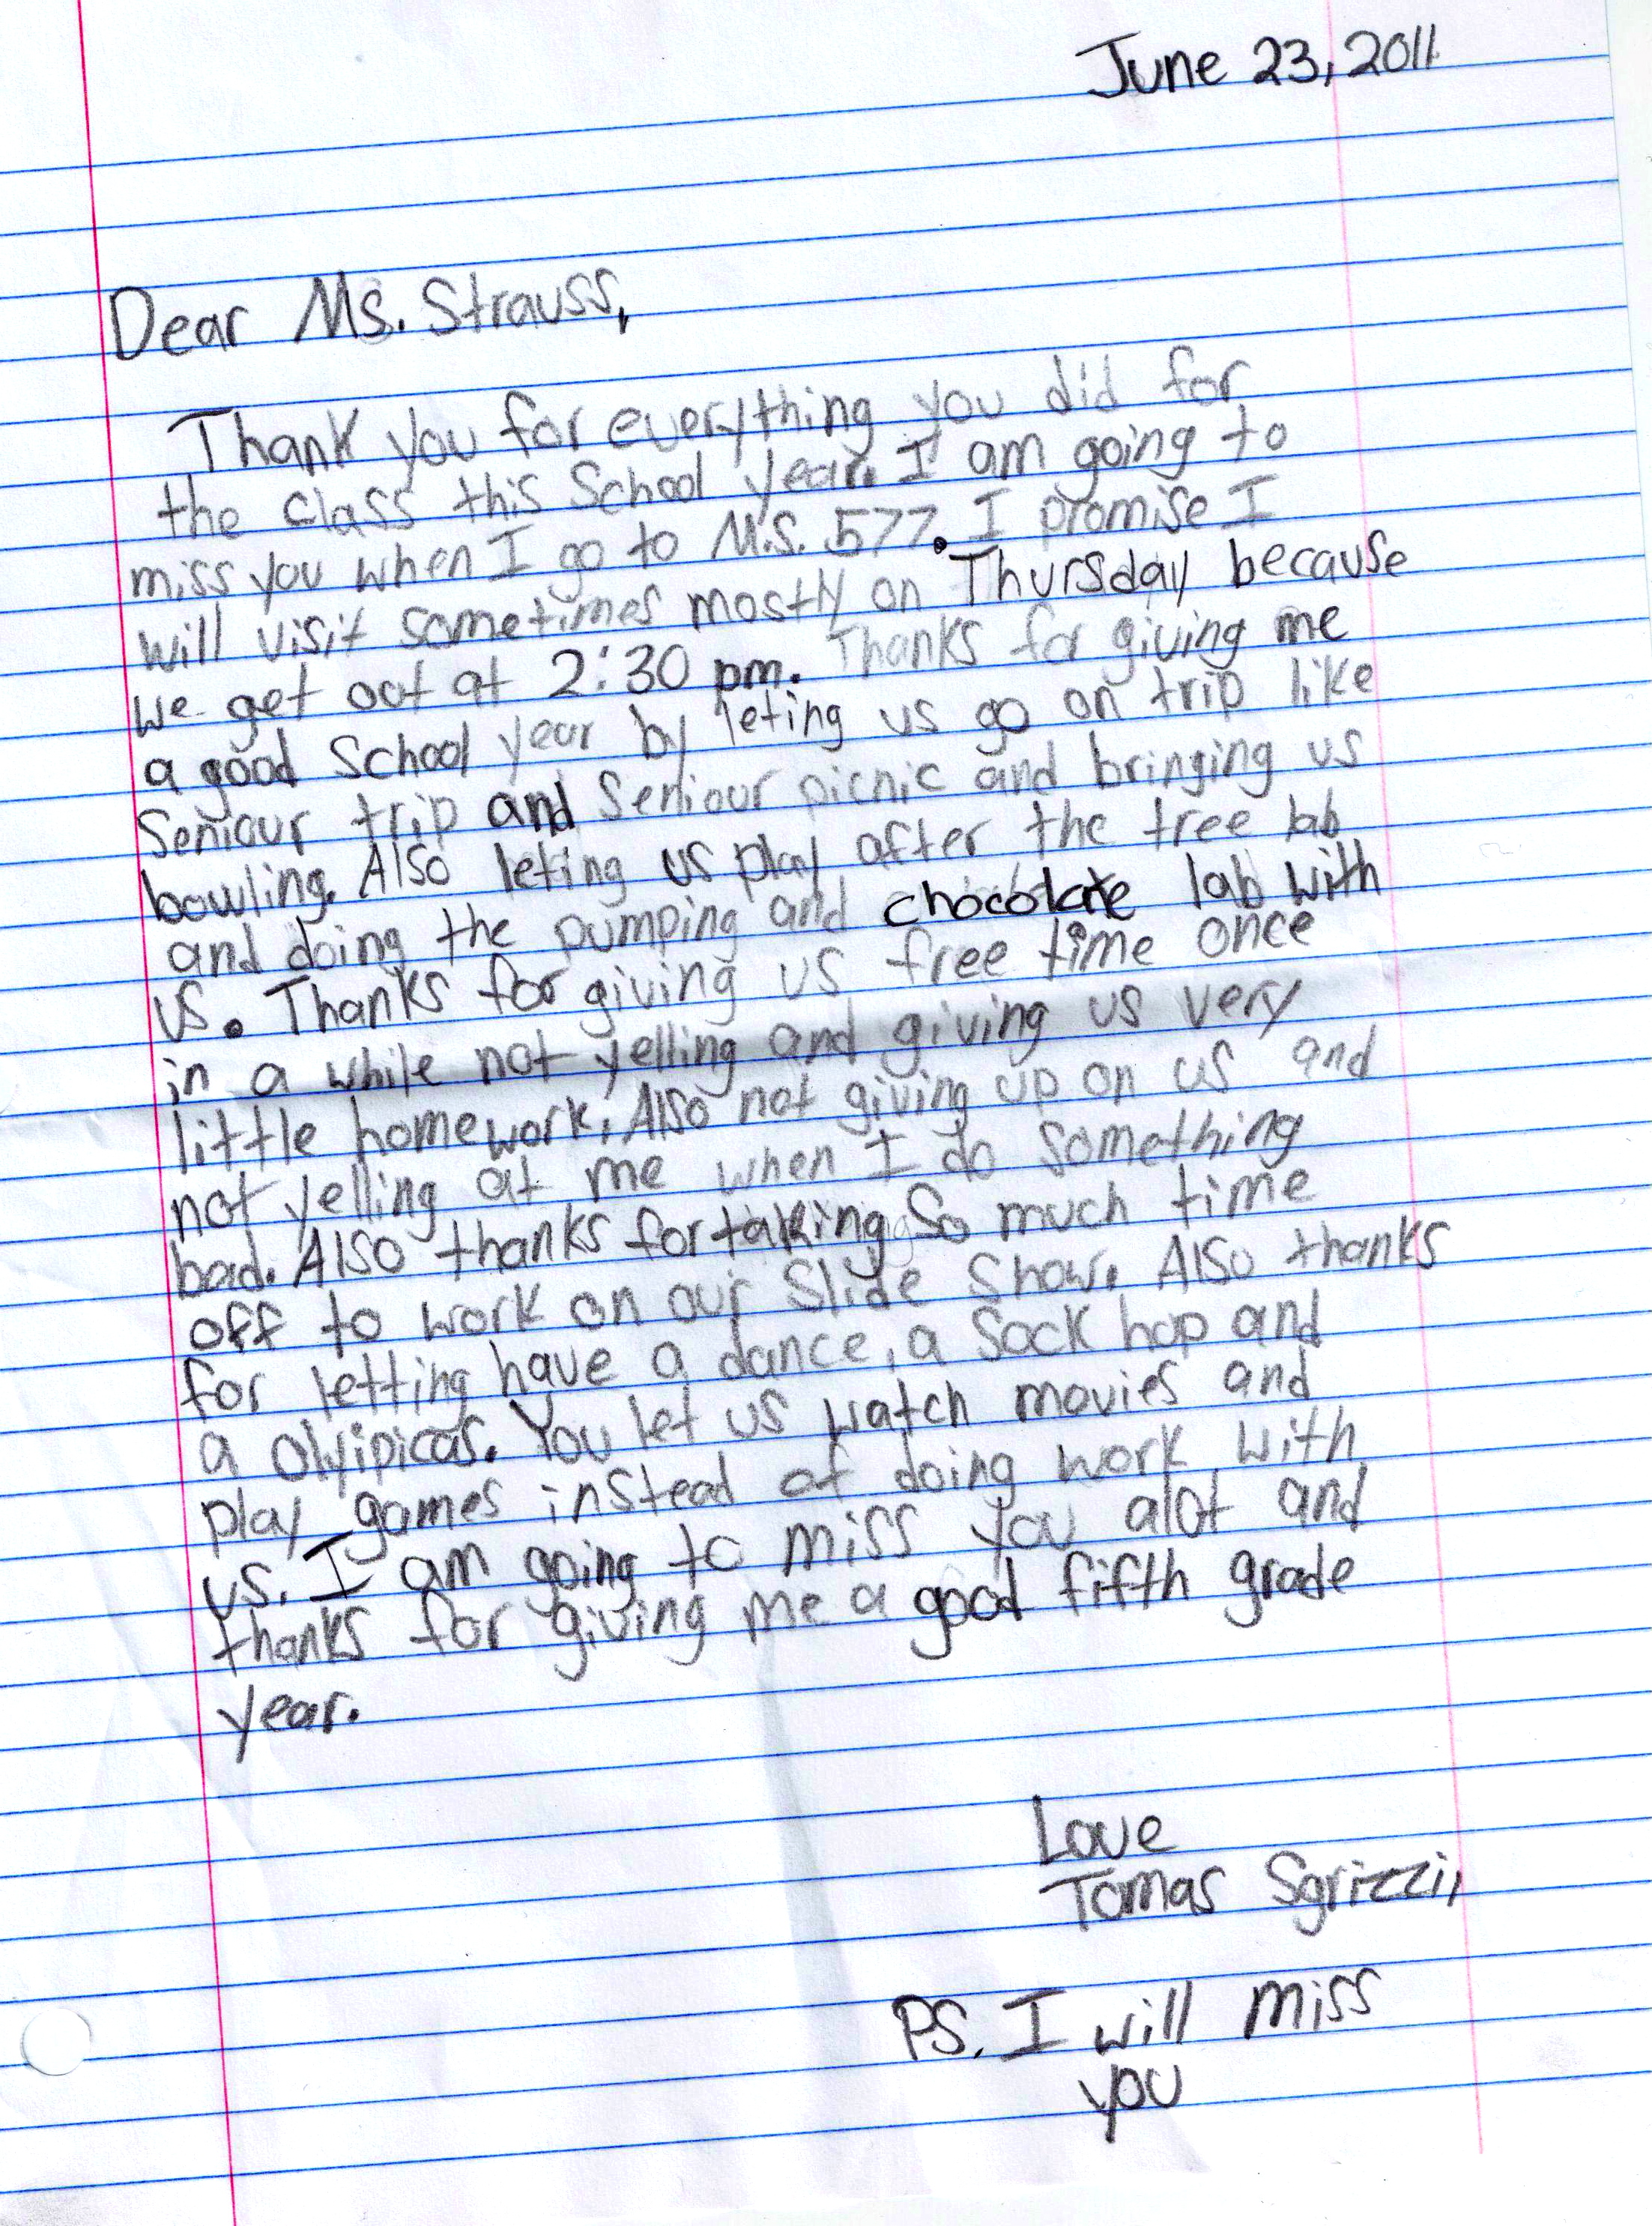 June 23, 2011
Dear Ms. Strauss,
Thank you for everything you did for
the class this School year. I am going to
miss you when I go to M.S. 577. I promise I
will visit sometimes mostly on Thursday because
we get out at 2:30 pm. Thanks for giving me
a good School year by leting us go on trip like
Seniour trip and Seniour picnic and bringing us
bowling. Also leting us play after the tree lab
and doing the pumping and chocolate lab with
us. Thanks for giving us free time once
in a while not yelling and giving us very
little homework. Also not giving up on us and
not yelling at me when I do something
bad. Also thanks for taking so much time
off to work on our Slide Show. Also thanks
for letting have a dance, a Sock hop and
a Olyipicas. You let us watch movies and
play games instead of doing work with
us. I am going to miss you alot and
thanks for giving me a good fifth grade
year.
Love
Tomas Sgrizzi,
PS. I will miss
you